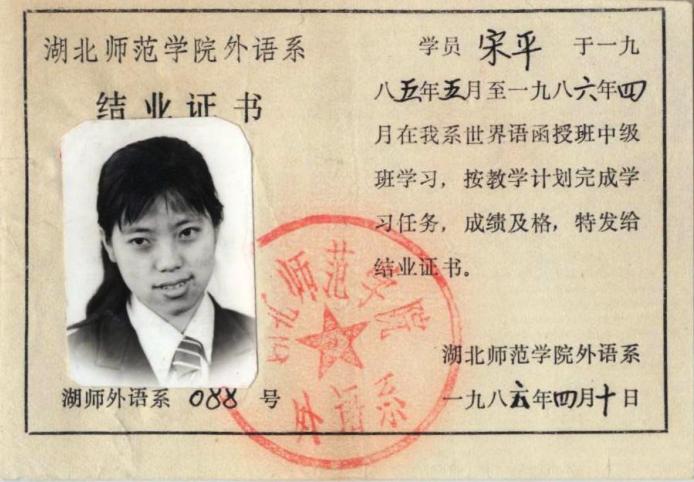 湖北师范学院外语系
结业证书
湖师外语系 088 号
学员 宋平 于一九
八五年五月至一九八六年四
月在我系世界语函授班中级
班学习，按教学计划完成学
习任务，成绩及格，特发给
结业证书。
湖北师范学院外语系
一九八六年四月十日
湖北师范学院
外语系